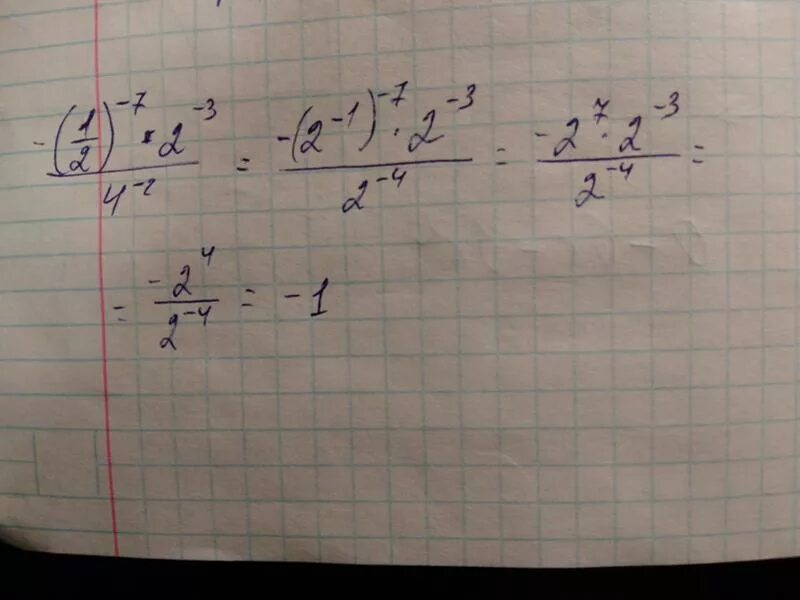 -(1/2)^-7 · 2^-3 / 4^-2 = -(2^-1)^-7 · 2^-3 / 2^-4 = -2^7 · 2^-3 / 2^-4 =
= -2^4 / 2^-4 = -1